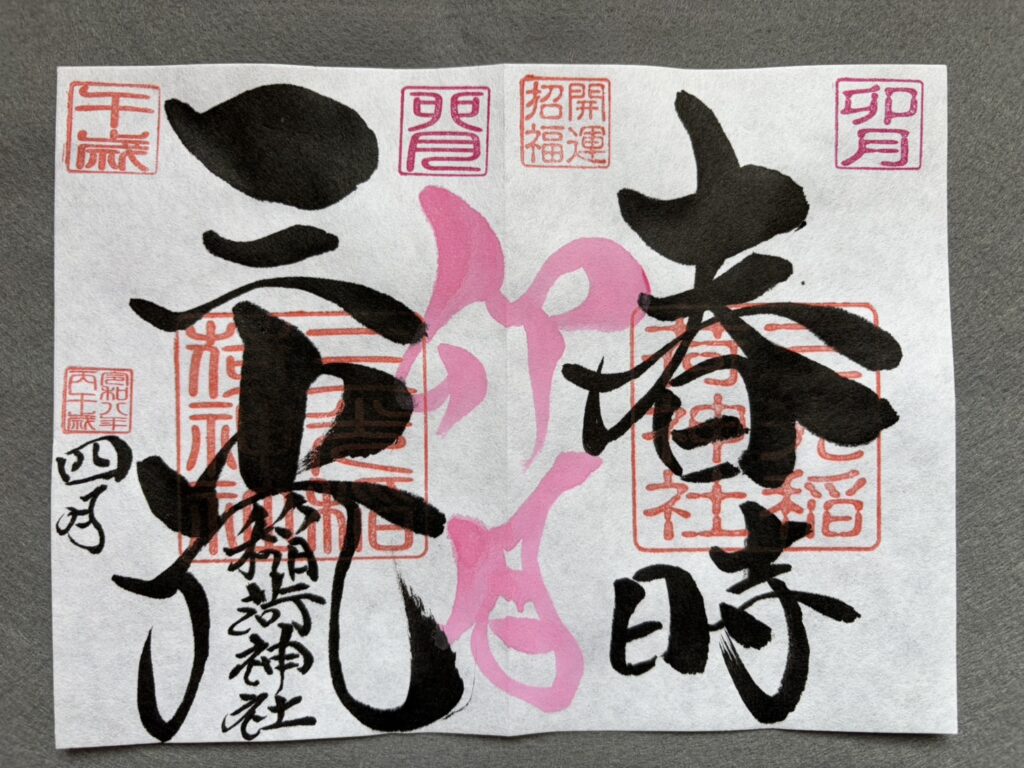 卯月
開運
招福
春時
三光稲
荷神社
卯月
卯月
三光
稲荷神社
三光稲
荷神社
午歳
令和八年
丙午歳
四月